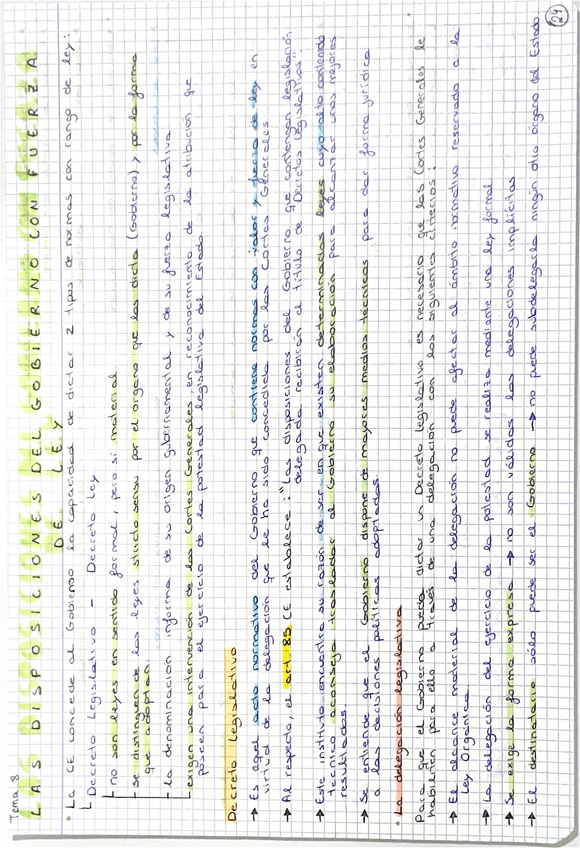 Tema 8
LAS DISPOSICIONES DEL GOBIERNO CON FUERZA
DE LEY
• La CE concede al Gobierno la capacidad de dictar 2 tipos de normas con rango de ley:
Decreto Legislativo - Decreto Ley
no son leyes en sentido formal, pero sí material
- se distinguen de las leyes stricto sensu por el órgano que las dicta (Gobierno) y por la forma
que adoptan
- la denominación informa de su origen gubernamental y de su fuerza legislativa
exigen una intervención de las Cortes Generales, en reconocimiento de la atribución que
poseen para el ejercicio de la potestad legislativa del Estado
Decreto Legislativo
→ Es aquel acto normativo del Gobierno que contiene normas con valor y fuerza de ley en
virtud de la delegación que le ha sido concedida por las Cortes Generales
→ Al respecto, el art. 85 CE establece: "Las disposiciones del Gobierno que contengan legislación
delegada recibirán el título de Decretos Legislativos".
→ Este instituto encuentra su razón de ser en que existen determinadas leyes cuyo alto contenido
técnico aconseja trasladar al Gobierno su elaboración para alcanzar unos mejores
resultados.
→ Se entiende que el Gobierno dispone de mayores medios técnicos para dar forma jurídica
a las decisiones políticas adoptadas.
• La delegación legislativa
Para que el Gobierno pueda dictar un Decreto Legislativo es necesario que las Cortes Generales le
habiliten para ello a través de una delegación con los siguientes criterios:
→ El alcance material de la delegación no puede afectar al ámbito normativo reservado a la
Ley Orgánica
→ La delegación del ejercicio de la potestad se realiza mediante una ley formal
→ Se exige la forma expresa → no son válidas las delegaciones implícitas
→ El destinatario sólo puede ser el Gobierno → no puede subdelegarla ningún otro órgano del Estado
24